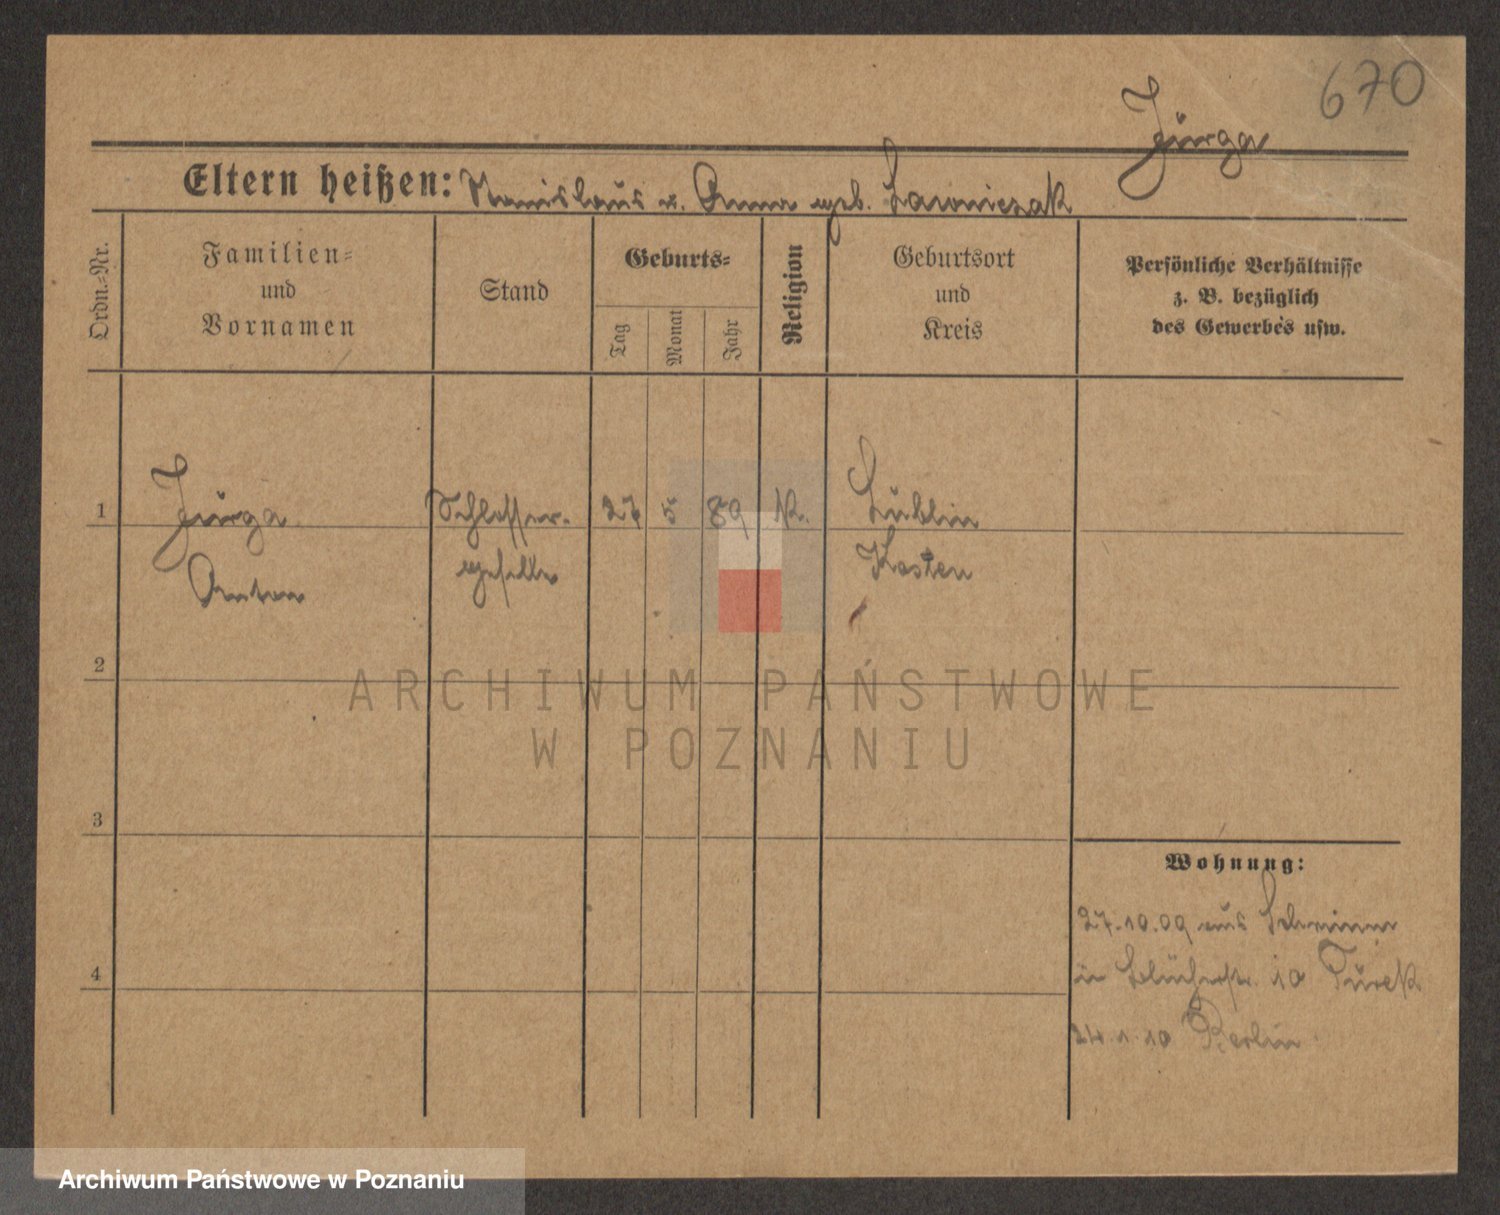 670
Jurga
Eltern heißen: Stanislaus u. Anna geb. Lawniczak
Ordn.-Nr.
Familien-
und
Vornamen
Stand
Geburts-
Tag
Monat
Jahr
Religion
Geburtsort
und
Kreis
Persönliche Verhältnisse
z. B. bezüglich
des Gewerbes usw.
1
Jurga
Schlosser-
27
5
89
K.
Lublin
geselle
Kosten
Anton
2
ARCHIWUM PAŃSTWOWE
W POZNANIU
3
Wohnung:
27.10.09 aus
4
in Blücherstr. 10 Turek
24.1.10 Berlin
Archiwum Państwowe w Poznaniu